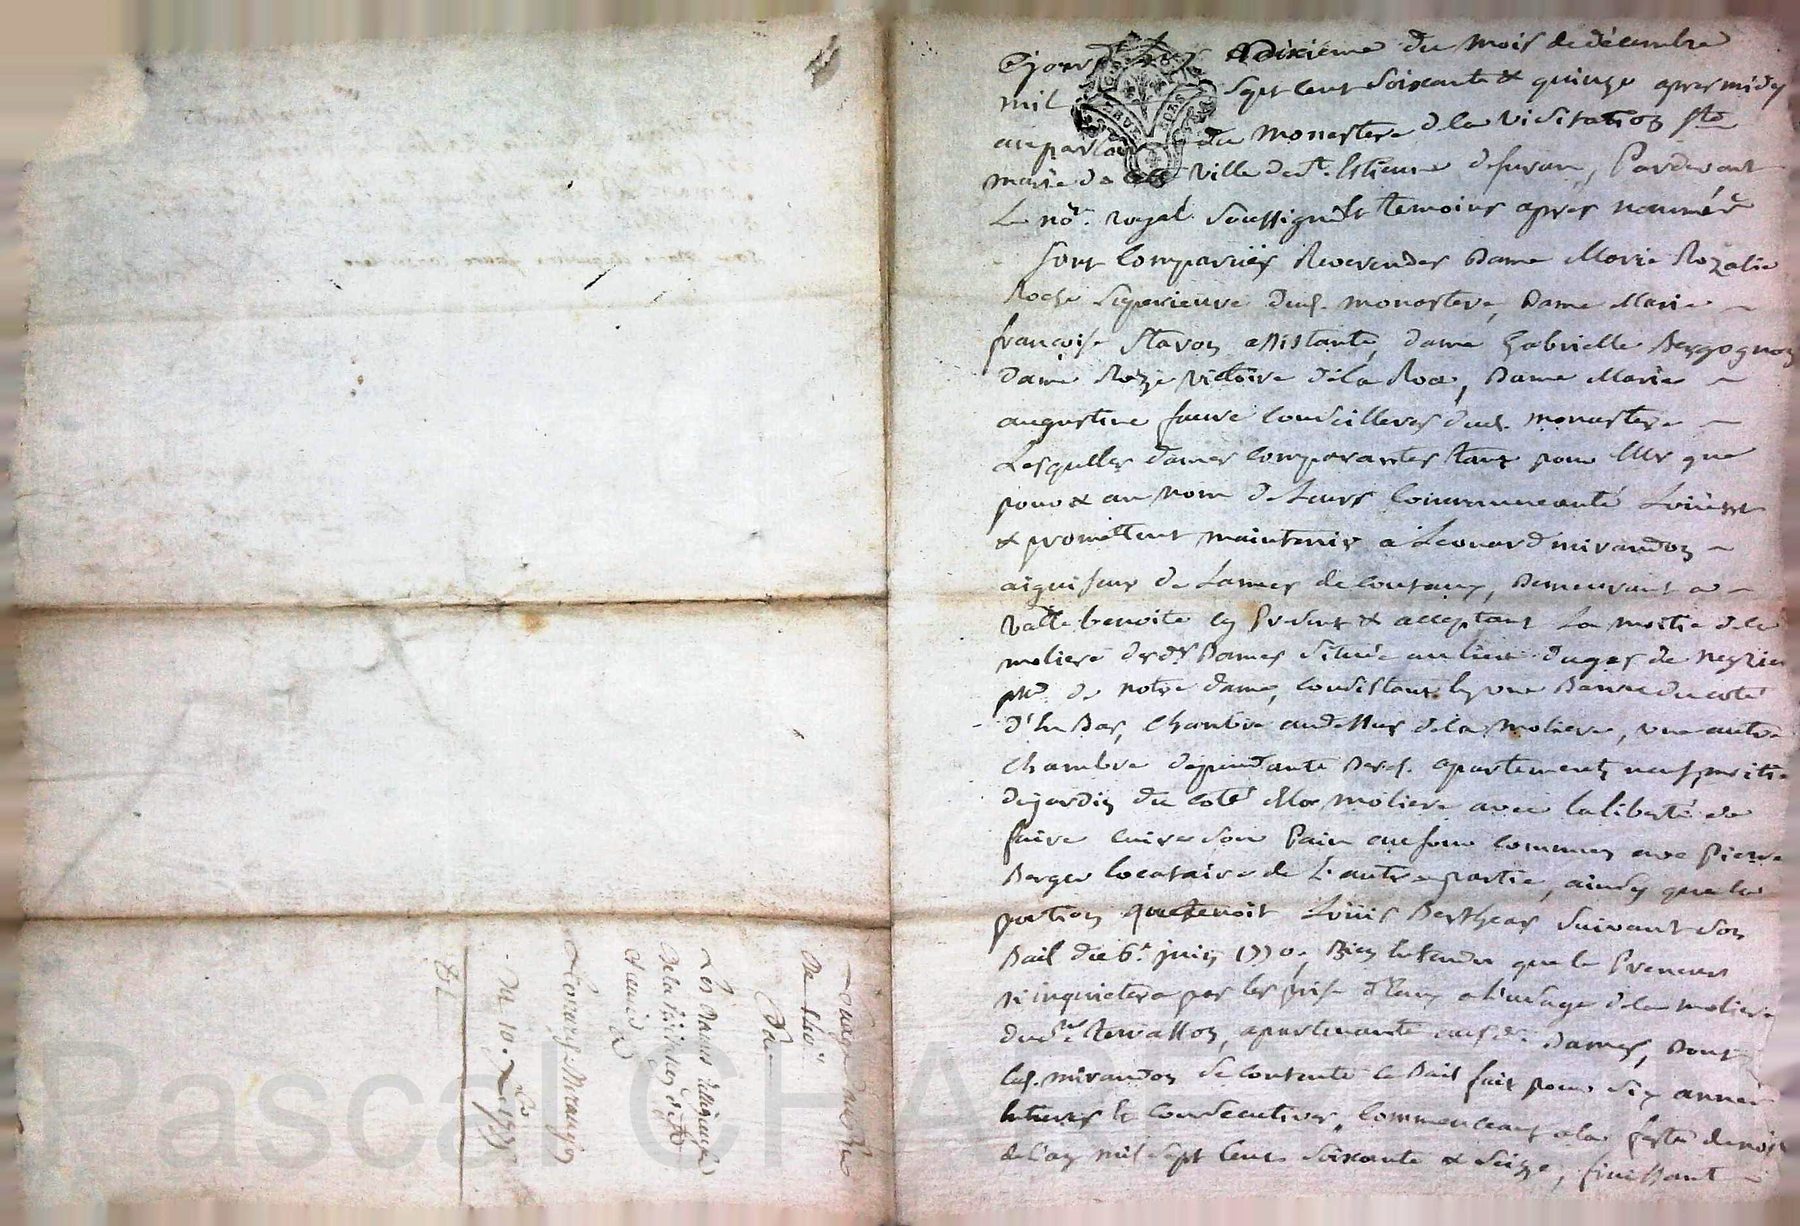 dixieme du mois de décembre
mil sept cent soixante & quinze apres midy
au parloir du monastere de la Visitation Ste
marie de ville de St. Etienne de furan, Pardevant
Le nore. royal soussigné & temoins apres nommés
sont comparües Reverendes Dame Marie Rozalie
Roche superieure dud. monastere, Dame Marie
françoise Staron assistante, dame Gabrielle Bergognon
dame Roze Victoire de la Roa, Dame Marie
augustine faure Conseilleres dud. monastere
Lesquelles dames comparantes tant pour Elles que
pour & au nom de Leurs Communeauté Loüent
& promettent maintenir a Leonard mirandon
aiguiseur de Lames de Couteaux, Demeurant a
Valbenoite icy Present & acceptant La moitié de la
moliere desd. Dames située au lieu du gas de
psse de notre dame, Consistant en une Banne du coté
d'En Bas, Chambre audessus de la Moliere, une autre
Chambre dependante des. apartements neufs, moitié
du jardin du coté de la moliere avec la liberté de
faire cuire son Pain au four Commun avec Pierre
Berger locataire de L'autre partie, ainsy que la
portion que tenoit Loüis Bertheas suivant son
Bail du 6e. juin 1770. Bien Entendu que le Preneur
n'inquietera pas les prise d'Eau a l'usage de la moliere
du Sr. Revallon, apartenante aux d. Dames, Dont
led. mirandon se contente le Bail fait pour six années
Entieres & consecutives, Commenceant a la feste de noel
de L'an mil sept cent soixante & seize, finissant
Louage
De 140ll
Par
Les Dames Religieuses
De la Visitation de St
Etienne
A
Leonard Mirandon
Du 10. Xbre 1775